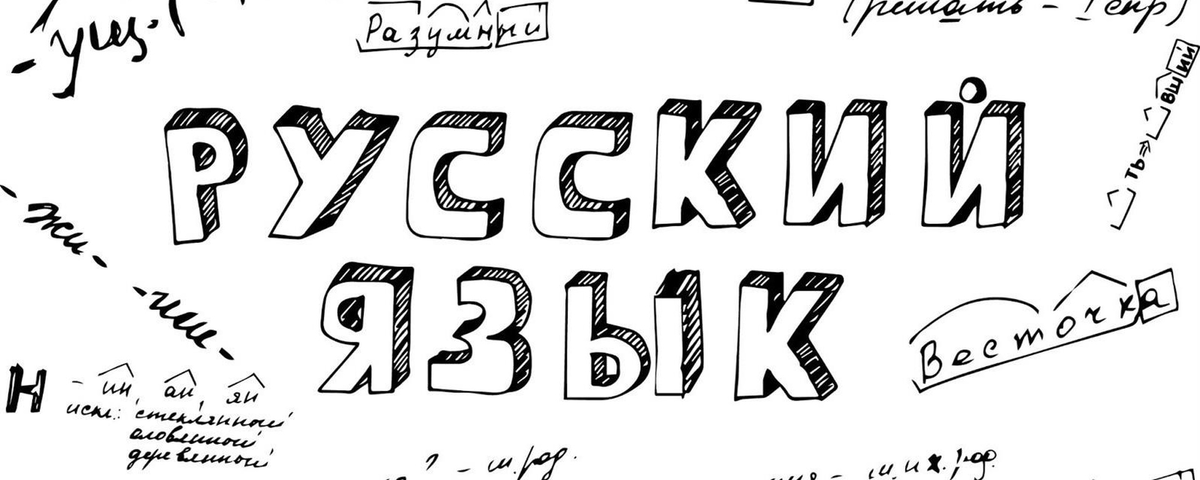 -ущ-
Разумный
(решать - I спр)
ть⇒ вш ий
РУССКИЙ
ЯЗЫК
- жи -
- ши -
Весточка
Н - ин, ан, ян
искл.: стеклянный
оловянный
деревянный
? - м.род.